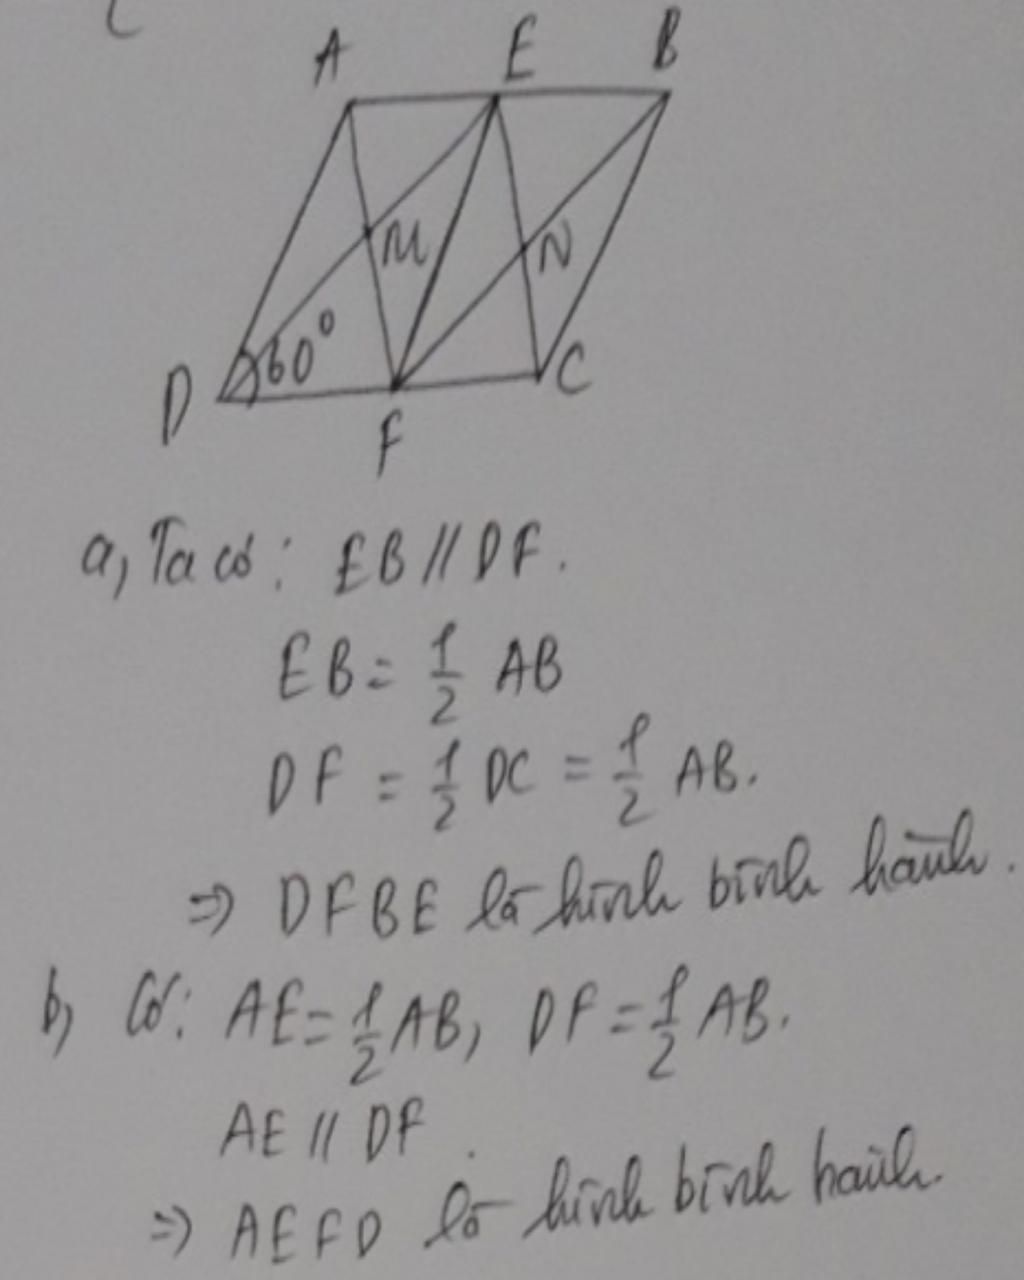 A E B
M N
D 60° C
F
a, Ta có: EB // DF.
EB = 1/2 AB
DF = 1/2 DC = 1/2 AB.
=> DFBE là hình bình hành.
b, Có: AE = 1/2 AB, DF = 1/2 AB.
AE // DF.
=> AEFD là hình bình hành.